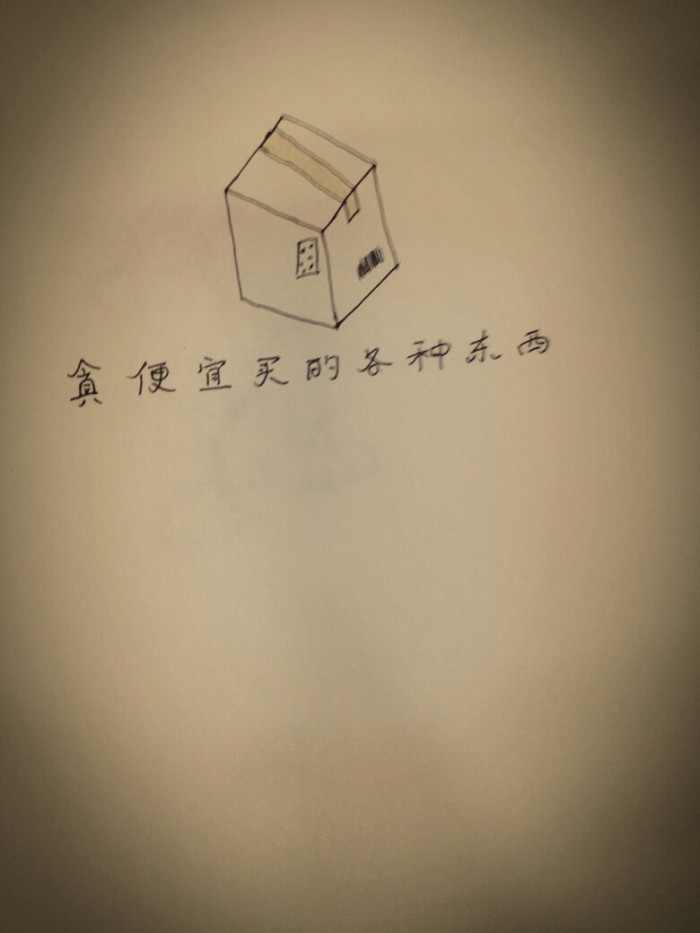 贪便宜买的各种东西